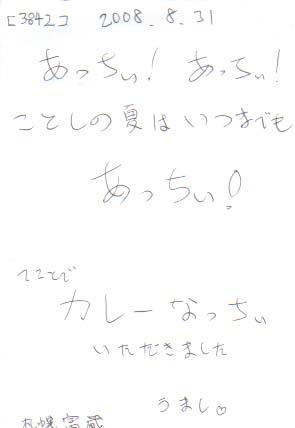 [3842] 2008.8.31
あっちぃ! あっちぃ!
ことしの夏はいつまでも
あっちぃ!
てことで
カレーなっちぃ
いただきました
うまし♡
札幌 富蔵